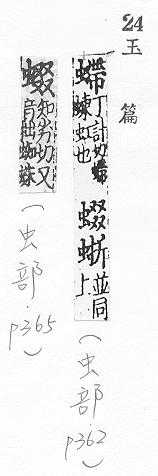 24 玉篇
螮 丁計切螮蝀虫也 蝃 並同上 (虫部, p362)
蝃 知劣切又音拙蜘蛛 (虫部, p365)